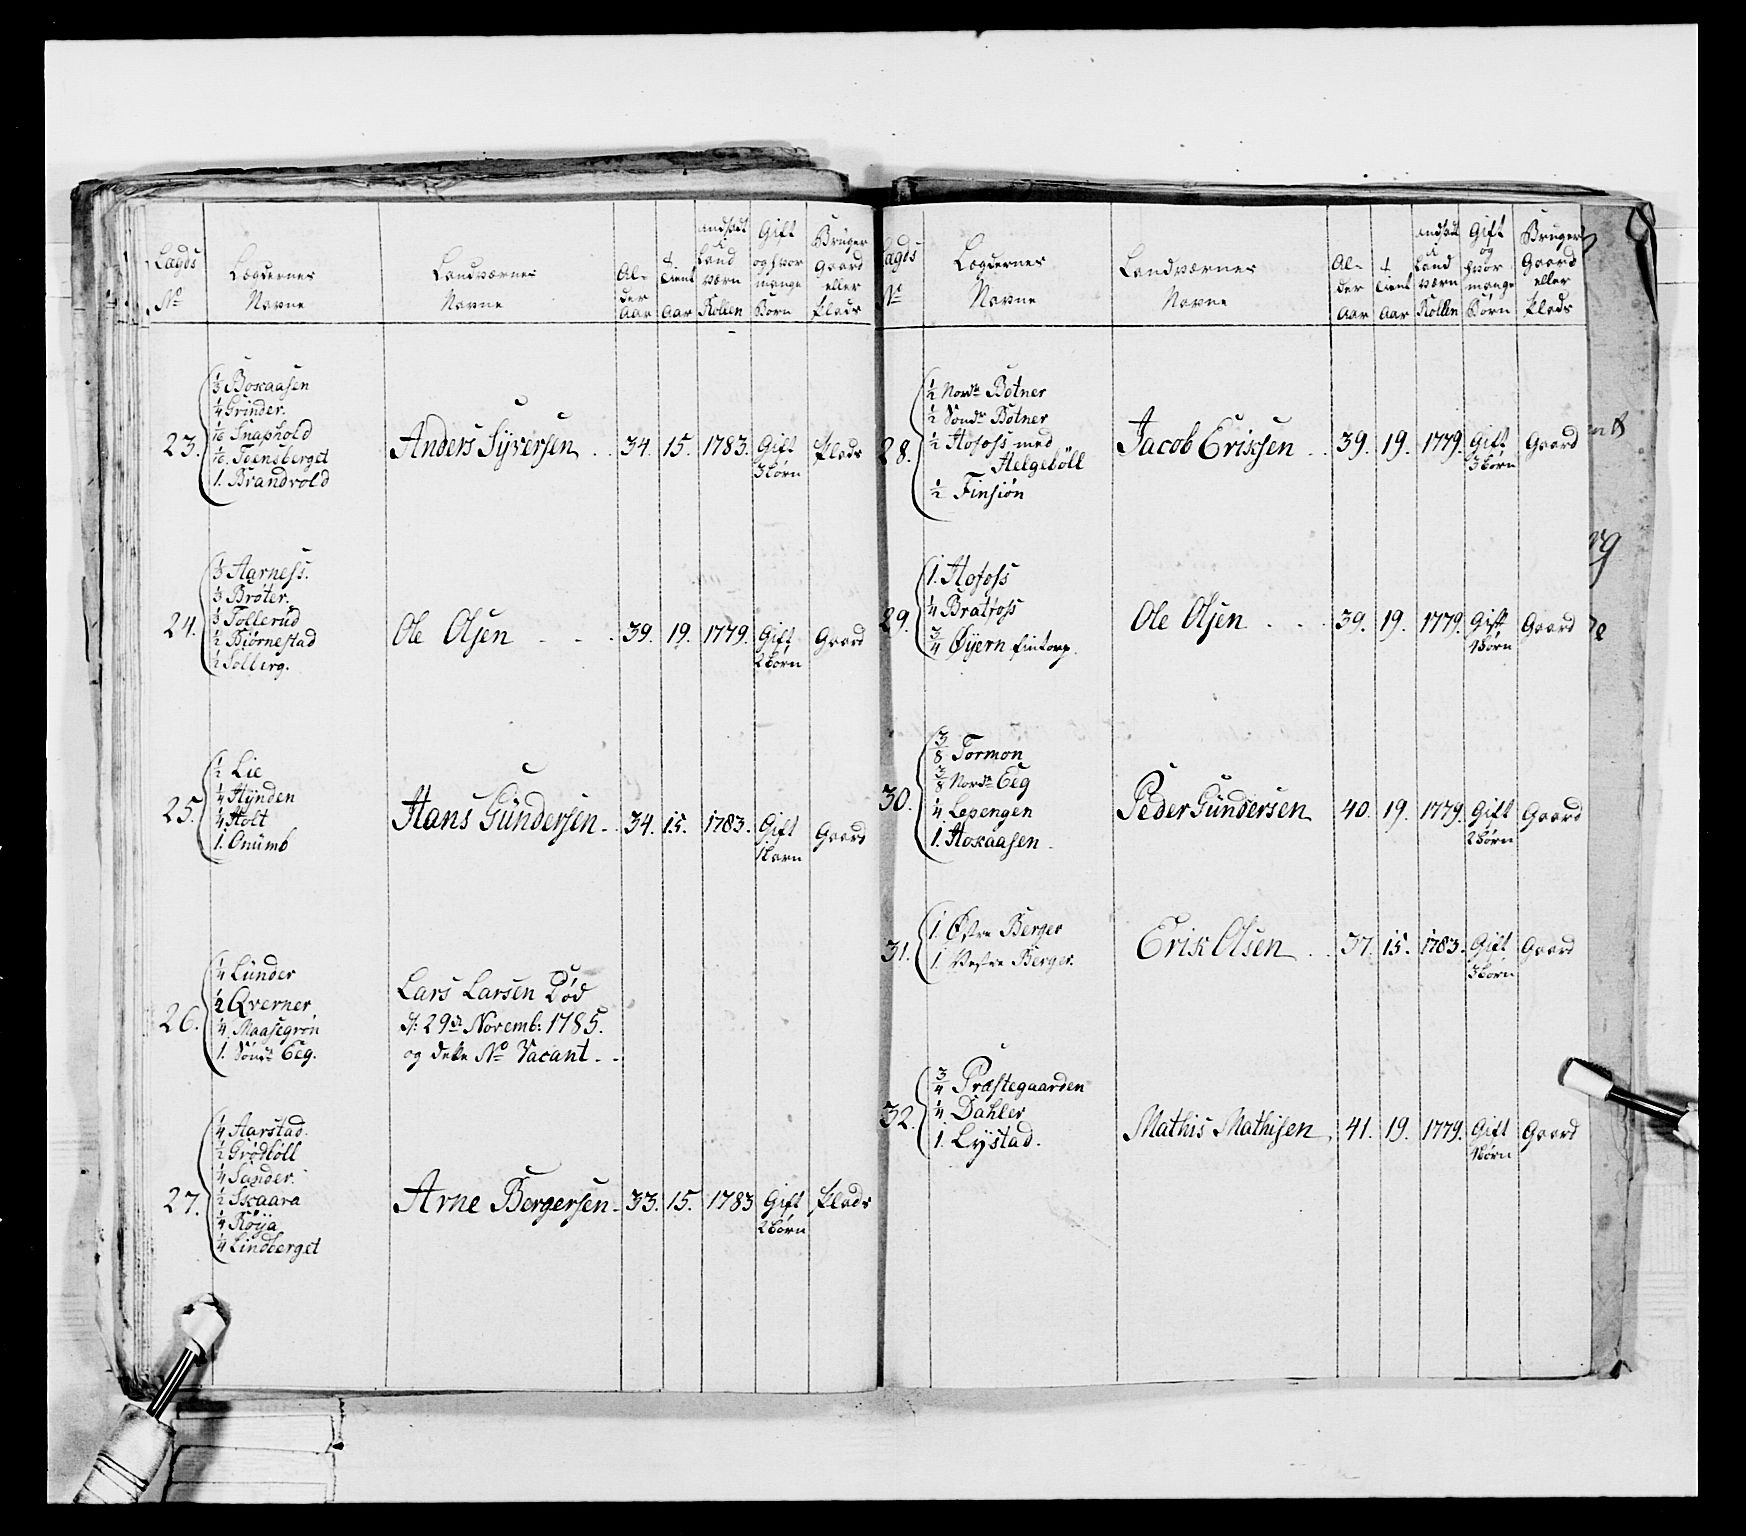 Lægds
No
Lægdernes
Navne
Landværnes
Navne
Al-
der
Aar
tient
Aar
andsadt
i
Land
værn
Rollen
Gift
og hvor
mange
Børn
Bruger
Gaard
eller
Plads
23.
1/3 Boxaasen
1/4 Grinder.
1/16 Snaphold
1. Brandvold
Anders Syversen 34. 15. 1783. Gift Plads
3 Børn
24.
1/3 Aarness.
1/3 Brøter.
1/3 Tollerud
1/2 Biørnestad
1/2 Solberg.
Ole Olsen 39. 19. 1779. Gift Gaard
2 Børn
25.
1/2 Lie
1/4 Hynden
1/4 Holt
1. Onumb
Hans Gundersen 34. 15. 1783. Gift Gaard
1 Barn
26.
1/4 Lunder
1/2 Qverner
1/4 Maasegrøn
1. Sønd: Eeg.
Lars Larsen Død
d: 29de Novemb: 1785.
og dette No Vacant
27.
1/4 Aarstad.
1/2 Grødbøll
1/4 Sander.
1/2 Skaara
1/4 Røya
1/4 Lindberget
Arne Bergersen 33. 15. 1783 Gift Plads
2 Børn
Lægds
No
Lægdernes
Navne
Landværnes
Navne
Al-
der
Aar
tient
Aar
andsadt
i
Land
værn
Rollen
Gift
og
hvor
mange
Børn
Bruger
Gaard
eller
Plads
28.
1/2 Nord: Botner
1/2 Sønd: Botner
1/2 Hofoss med
Helgebøll
1/2 Finsiøn
Jacob Erixsen 39. 19. 1779. Gift Gaard
3 Børn
29.
1. Hofoss
1/4 Bratfoss
3/4 Øyern fintorp.
Ole Olsen 39. 19. 1779. Gift Gaard
4 Børn
30.
3/8 Tormon
3/8 Nord: Eeg
1/4 Lepengen
1. Hoxaasen
Peder Gundersen 40. 19. 1779. Gift Gaard
2 Børn
31.
1. Østre Berger
1. Vestre Berger.
Erik Olsen 37. 15. 1783. Gift Gaard
3 Børn
32.
3/4 Præstegaarden
1/4 Dahler
1. Lystad.
Mathis Mathisen 41. 19. 1779. Gift Gaard
4 Børn